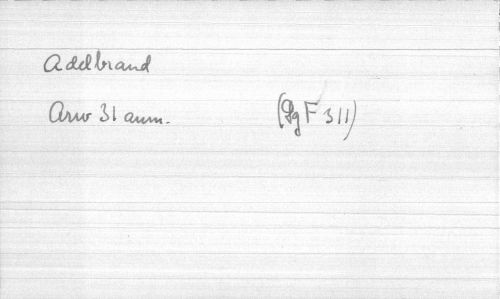 Adelbrand
Arw 31 anm. (Sg F 311)